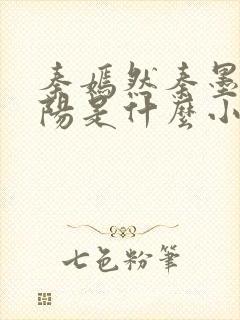 秦嫣然秦墨
陽是什麼小
七色粉筆